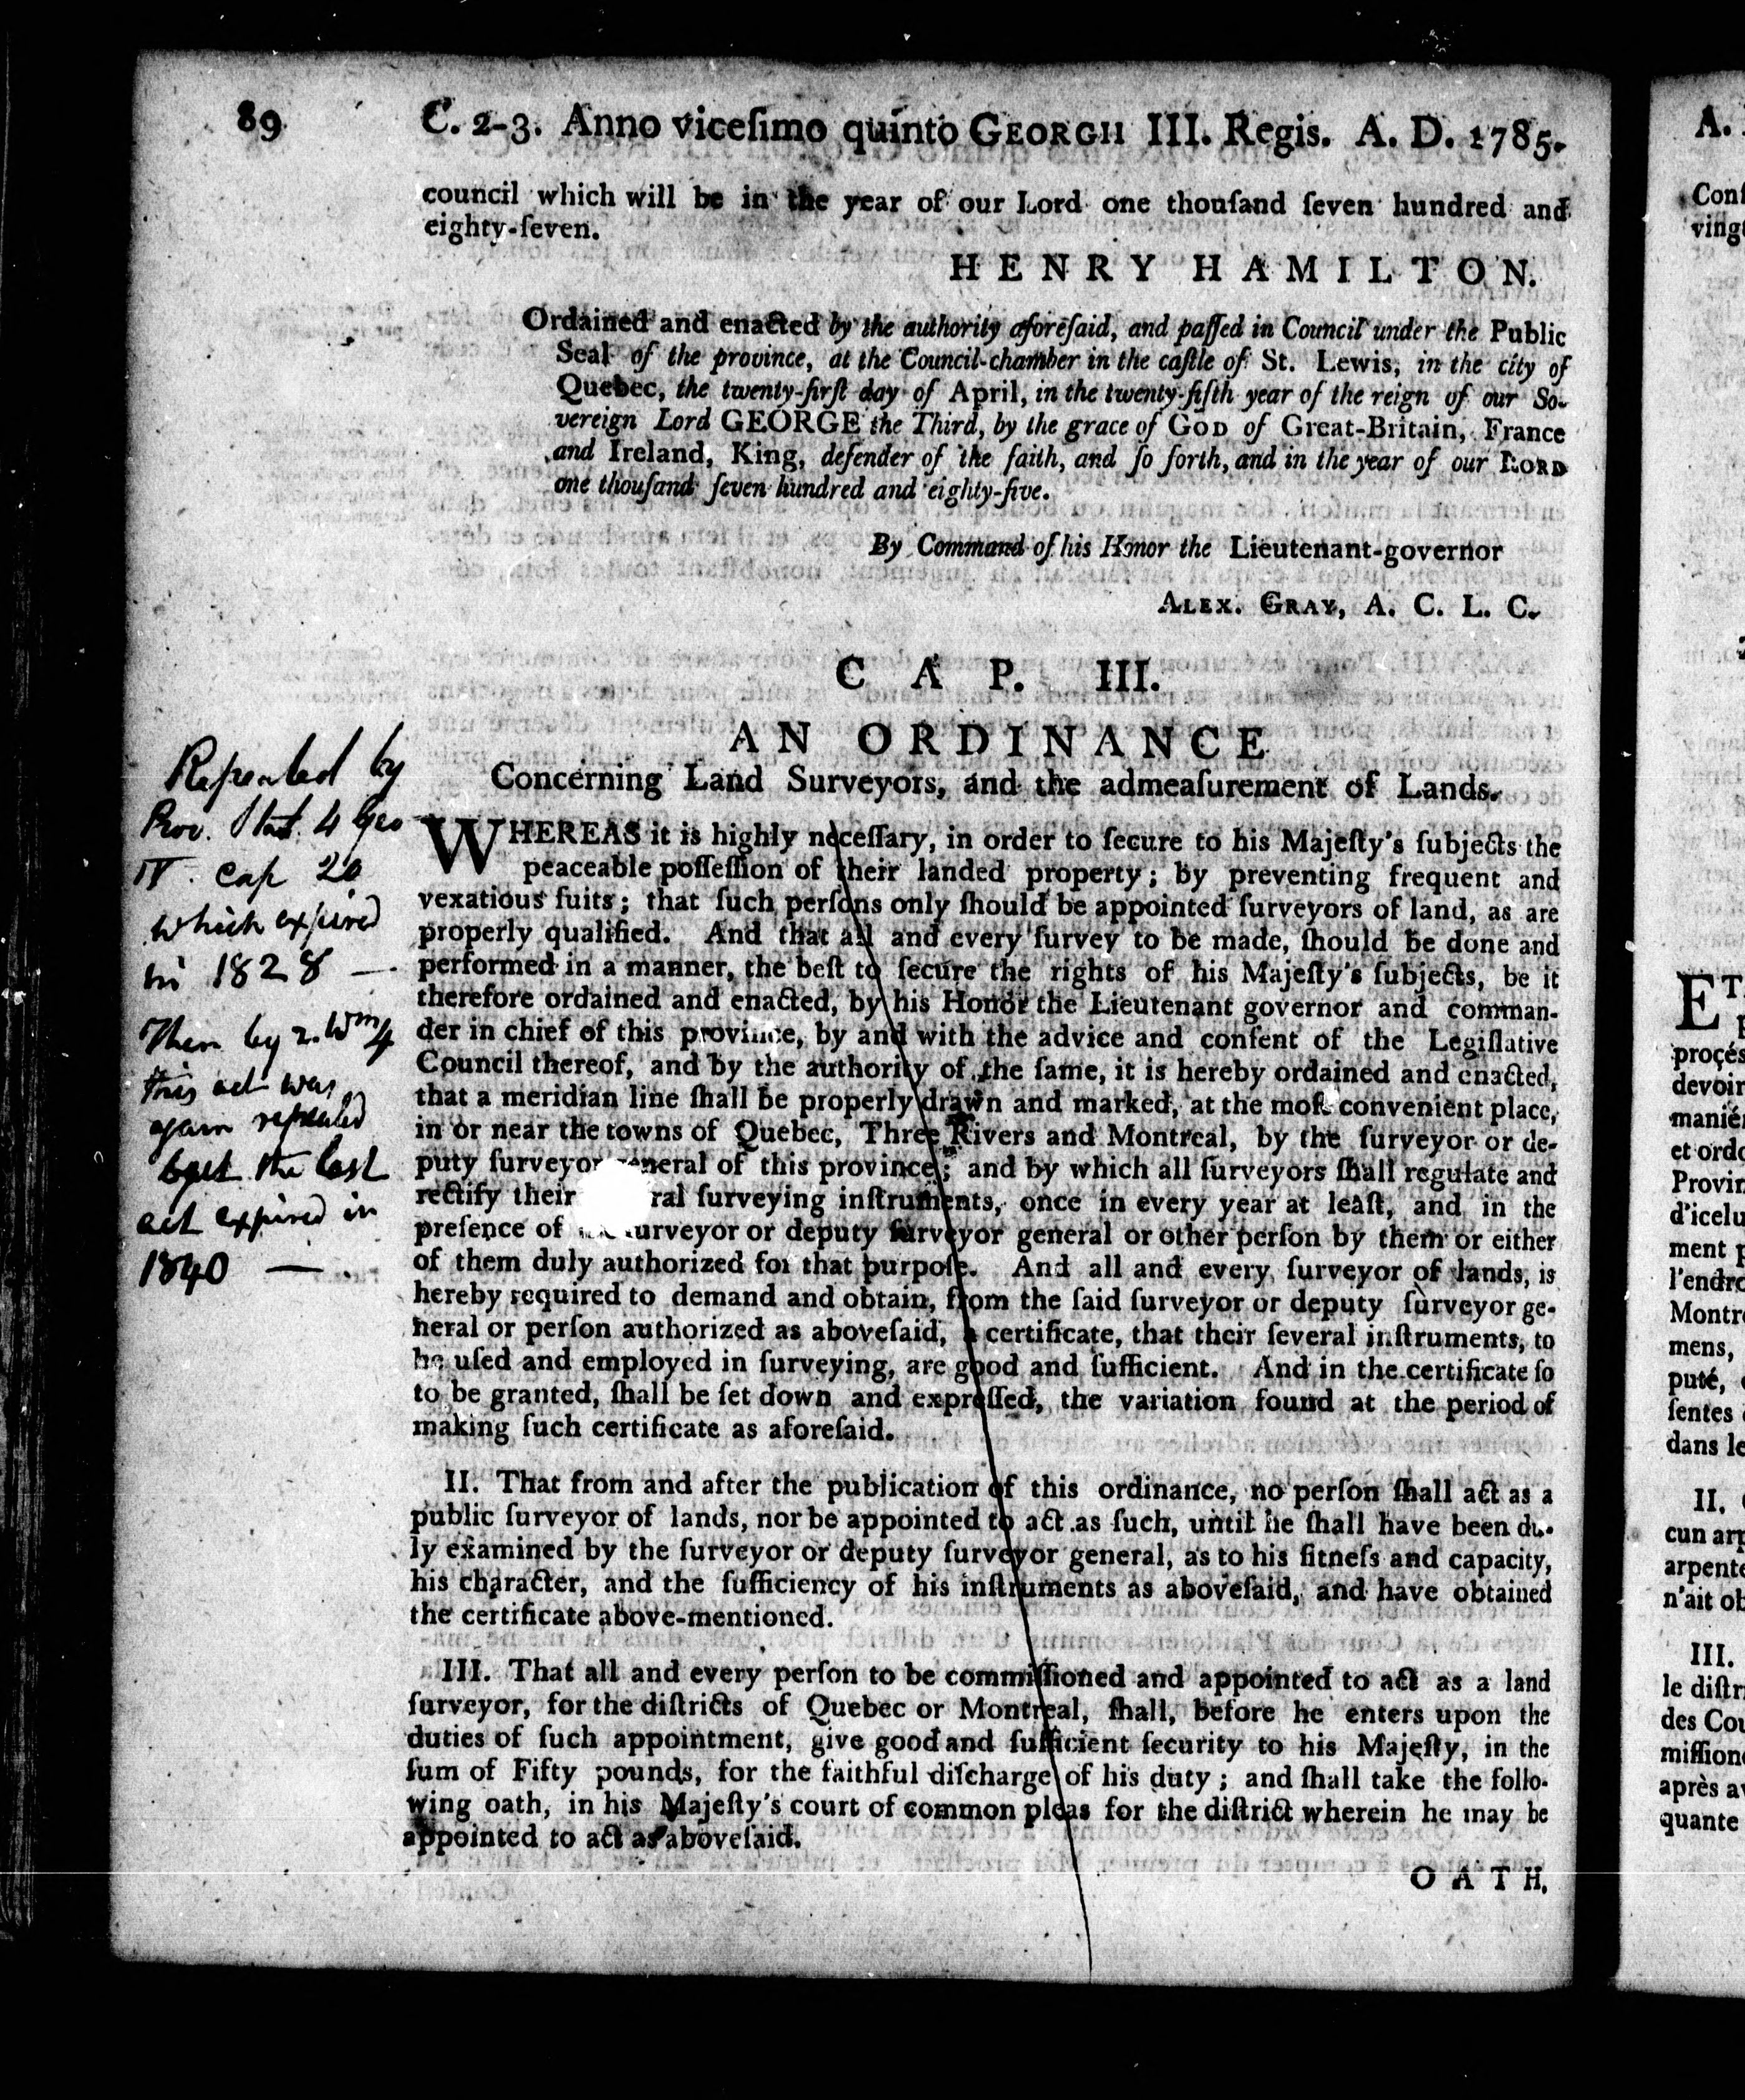 89
C. 2-3. Anno viceſimo quinto GEORGII III. Regis. A. D. 1785.
council which will be in the year of our Lord one thouſand ſeven hundred and
eighty-ſeven.
HENRY HAMILTON.
Ordained and enacted by the authority aforeſaid, and paſſed in Council under the Public
Seal of the province, at the Council-chamber in the caſtle of St. Lewis, in the city of
Quebec, the twenty-firſt day of April, in the twenty-fifth year of the reign of our So-
vereign Lord GEORGE the Third, by the grace of GOD of Great-Britain, France
and Ireland, King, defender of the faith, and ſo forth, and in the year of our LORD
one thouſand ſeven hundred and eighty-five.
By Command of his Honor the Lieutenant-governor
ALEX. GRAY, A. C. L. C.
CAP. III.
AN ORDINANCE
Concerning Land Surveyors, and the admeaſurement of Lands.
WHEREAS it is highly neceſſary, in order to ſecure to his Majeſty's ſubjects the
peaceable poſſeſſion of their landed property; by preventing frequent and
vexatious ſuits; that ſuch perſons only ſhould be appointed ſurveyors of land, as are
properly qualified. And that all and every ſurvey to be made, ſhould be done and
performed in a manner, the beſt to ſecure the rights of his Majeſty's ſubjects, be it
therefore ordained and enacted, by his Honor the Lieutenant governor and comman-
der in chief of this province, by and with the advice and conſent of the Legiſlative
Council thereof, and by the authority of the ſame, it is hereby ordained and enacted,
that a meridian line ſhall be properly drawn and marked, at the moſt convenient place,
in or near the towns of Quebec, Three Rivers and Montreal, by the ſurveyor or de-
puty ſurveyor general of this province; and by which all ſurveyors ſhall regulate and
rectify their ral ſurveying inſtruments, once in every year at leaſt, and in the
preſence of ſurveyor or deputy ſurveyor general or other perſon by them or either
of them duly authorized for that purpoſe. And all and every ſurveyor of lands, is
hereby required to demand and obtain, from the ſaid ſurveyor or deputy ſurveyor ge-
neral or perſon authorized as aboveſaid, a certificate, that their ſeveral inſtruments, to
be uſed and employed in ſurveying, are good and ſufficient. And in the certificate ſo
to be granted, ſhall be ſet down and expreſſed, the variation found at the period of
making ſuch certificate as aforeſaid.
II. That from and after the publication of this ordinance, no perſon ſhall act as a
public ſurveyor of lands, nor be appointed to act as ſuch, until he ſhall have been du-
ly examined by the ſurveyor or deputy ſurveyor general, as to his fitneſs and capacity,
his character, and the ſufficiency of his inſtruments as aboveſaid, and have obtained
the certificate above-mentioned.
III. That all and every perſon to be commiſſioned and appointed to act as a land
ſurveyor, for the diſtricts of Quebec or Montreal, ſhall, before he enters upon the
duties of ſuch appointment, give good and ſufficient ſecurity to his Majeſty, in the
ſum of Fifty pounds, for the faithful diſcharge of his duty; and ſhall take the follo-
wing oath, in his Majeſty's court of common pleas for the diſtrict wherein he may be
appointed to act as aboveſaid.
OATH.
Repealed by
Prov. Stat. 4 Geo
IV. cap 20
which expired
in 1828 —
Then by 2. Wm 4
this act was
again repealed
but the last
act expired in
1840 — .
A.
Conſ
vingt
ET
p
proçés
devoir
maniér
et ordo
Provin
d'icelu
ment p
l'endro
Montre
mens,
puté,
ſentes
dans le
II.
cun arp
arpente
n'ait ob
III.
le diſtr
des Cou
miſſion
après av
quante